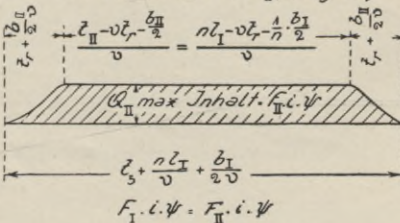 t_r + b_II/2v
(l_II - vt_r - b_II/2)/v = (nl_I - vt_r - 1/n · b_I/2)/v
t_r + b_II/2v
Q_II max Inhalt · F_II · i · ψ
t_s + nl_I/v + b_I/2v
F_I · i · ψ = F_II · i · ψ